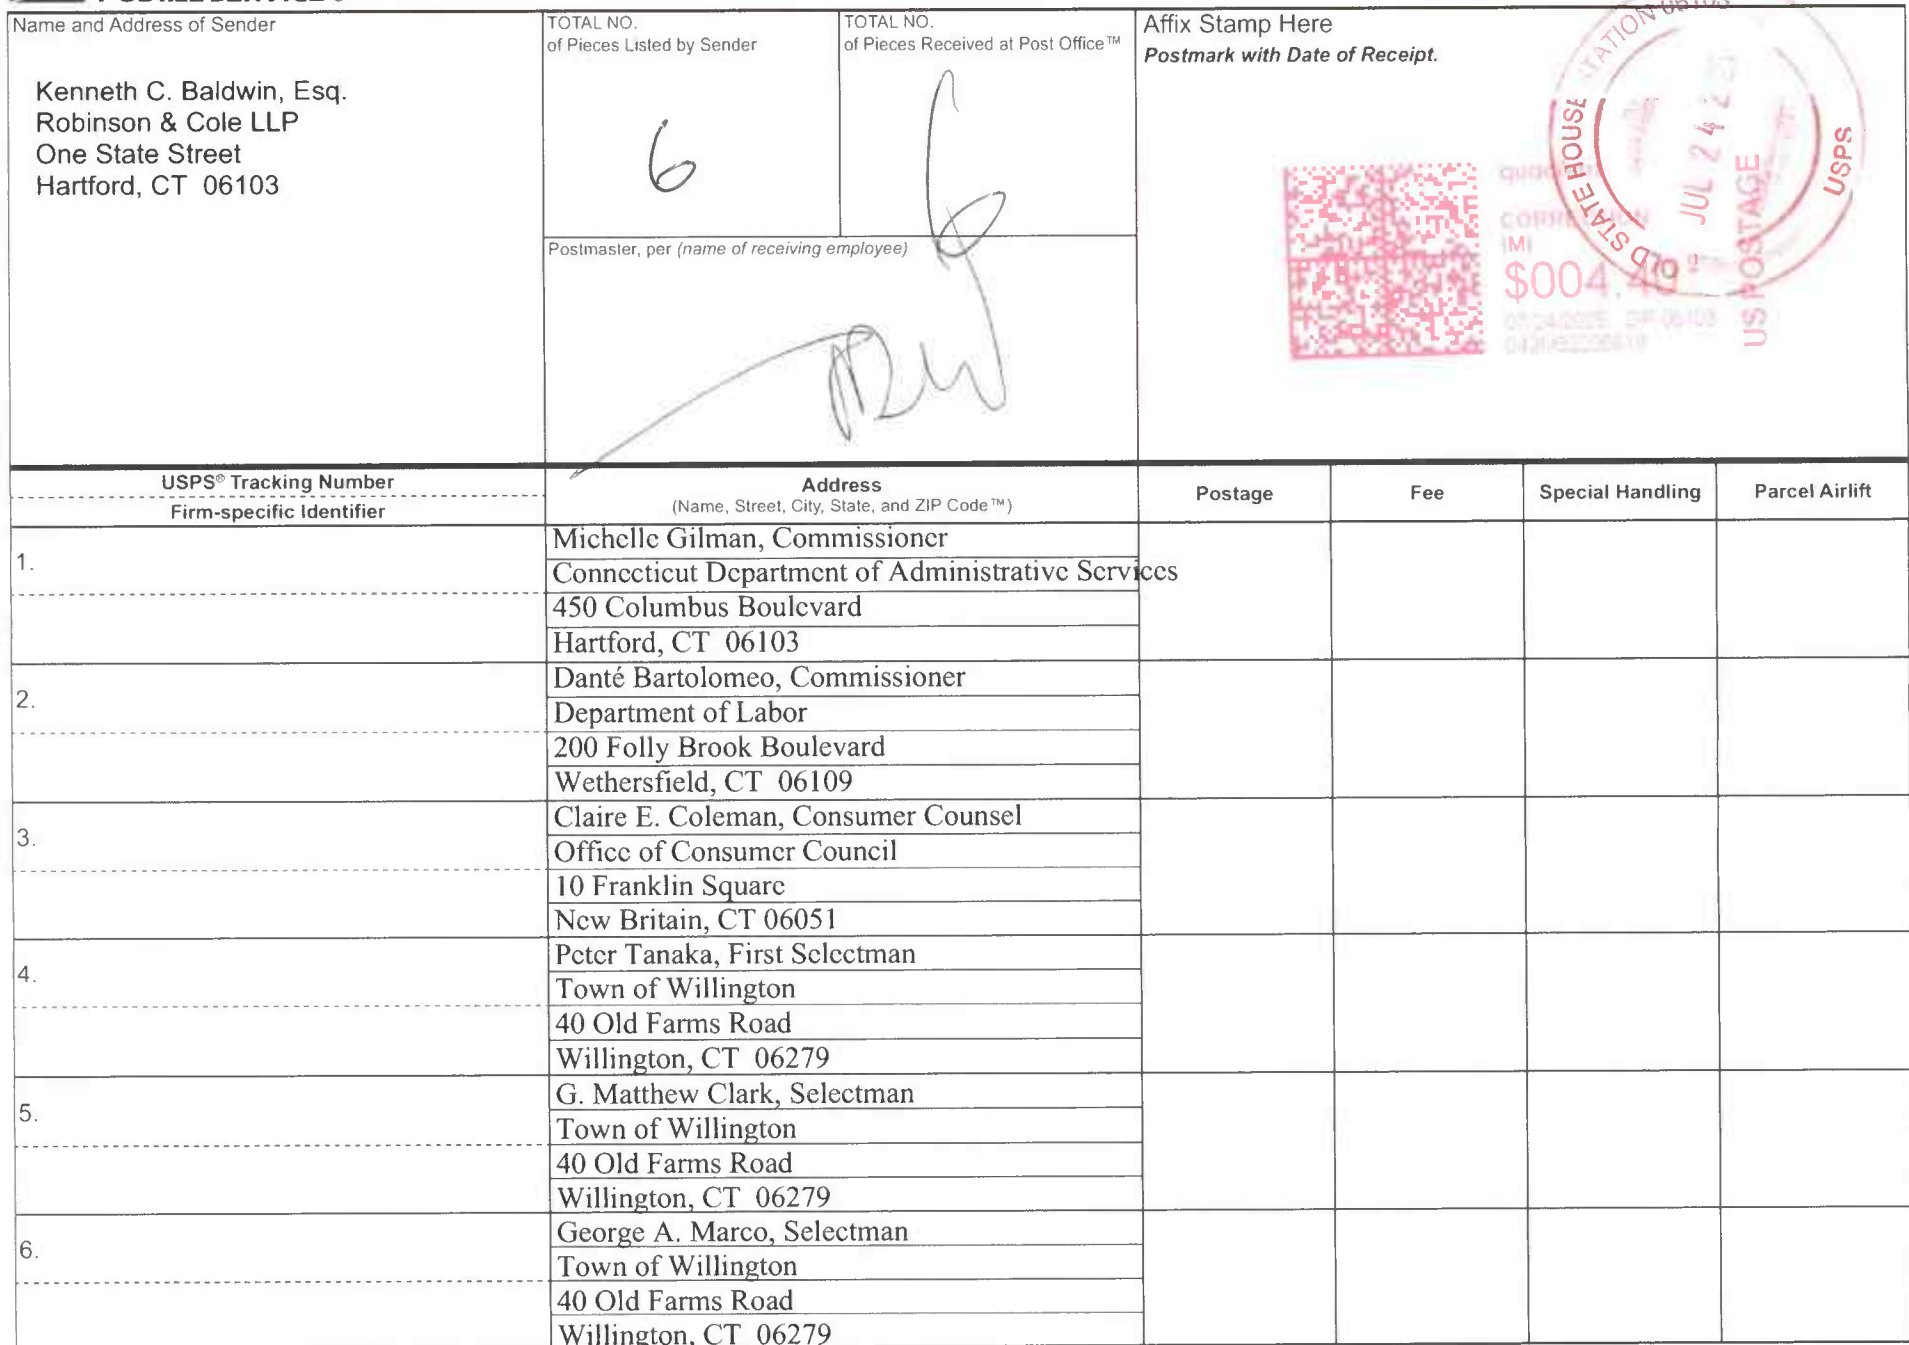 Name and Address of Sender
Kenneth C. Baldwin, Esq.
Robinson & Cole LLP
One State Street
Hartford, CT 06103
TOTAL NO.
of Pieces Listed by Sender
6
TOTAL NO.
of Pieces Received at Post Office™
6
Postmaster, per (name of receiving employee)
Affix Stamp Here
Postmark with Date of Receipt.
OLD STATE HOUSE STATION 06103
JUL 24 2025
USPS
CORRECTION
IMI
$004.40
US POSTAGE
USPS® Tracking Number
Firm-specific Identifier
Address
(Name, Street, City, State, and ZIP Code™)
Postage
Fee
Special Handling
Parcel Airlift
1.
Michelle Gilman, Commissioner
Connecticut Department of Administrative Services
450 Columbus Boulevard
Hartford, CT 06103
2.
Danté Bartolomeo, Commissioner
Department of Labor
200 Folly Brook Boulevard
Wethersfield, CT 06109
3.
Claire E. Coleman, Consumer Counsel
Office of Consumer Council
10 Franklin Square
New Britain, CT 06051
4.
Peter Tanaka, First Selectman
Town of Willington
40 Old Farms Road
Willington, CT 06279
5.
G. Matthew Clark, Selectman
Town of Willington
40 Old Farms Road
Willington, CT 06279
6.
George A. Marco, Selectman
Town of Willington
40 Old Farms Road
Willington, CT 06279